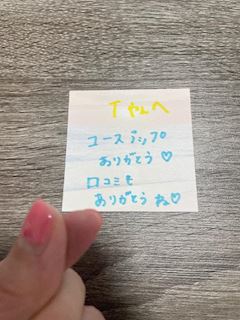 Tやんへ
コースアップ
ありがとう♡
口コミも
ありがとうね♡